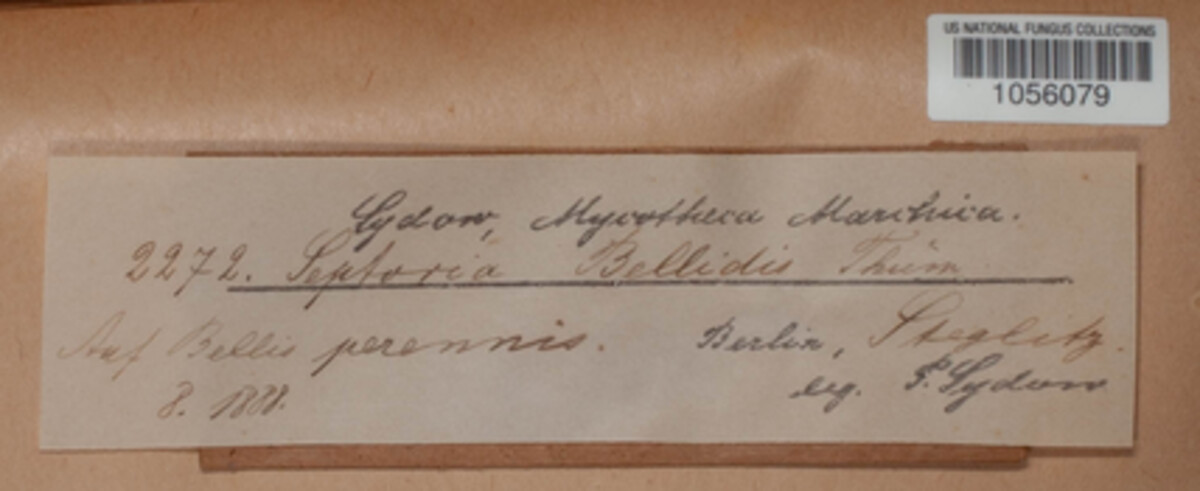 US NATIONAL FUNGUS COLLECTIONS
1056079
Sydow, Mycotheca Marchica.
2272. Septoria Bellidis Thüm
Auf Bellis perennis. Berlin, Steglitz.
8. 1888. leg. P. Sydow